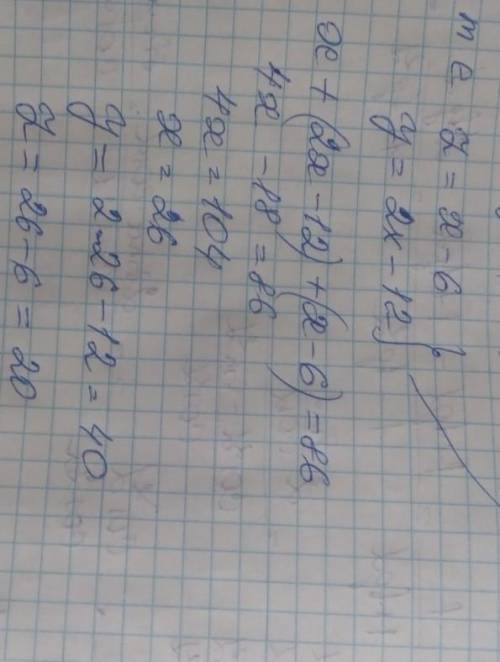 т е z = x - 6
y = 2x - 12
x + (2x - 12) + (x - 6) = 86
4x - 18 = 86
4x = 104
x = 26
y = 2·26 - 12 = 40
z = 26 - 6 = 20